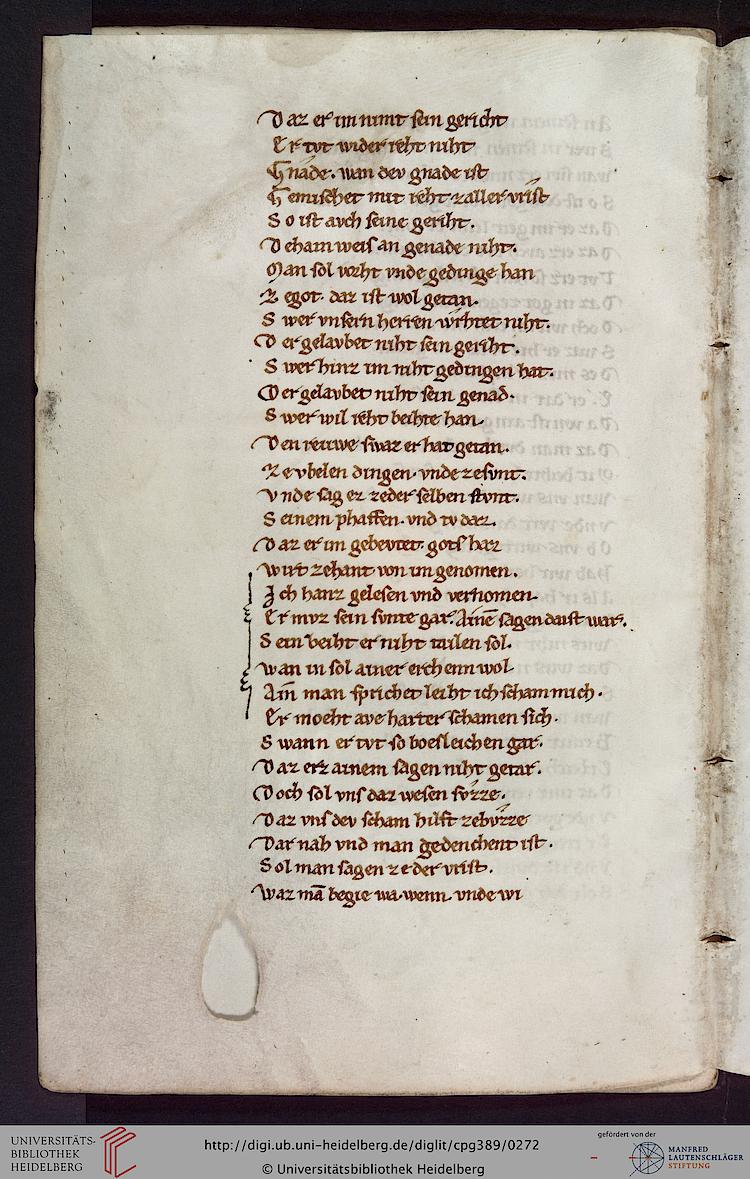 Daz er im nimt sein gericht
Er tvt wider reht niht
Gnade. wan dev gnade ist
Gemischet mit reht zaller vrist
So ist avch seine geriht.
Dehain weis an genade niht.
Man sol vorht vnde gedinge han
Ze got. daz ist wol getan.
Swer vnsern herren vvrhtet niht.
Der gelavbet niht sein geriht.
Swer hinz im niht gedingen hat.
Der gelavbet niht sein genad.
Swer wil reht beihte han.
Den reuwe swaz er hat getan.
Ze vbelen dingen. vnde ze svnt.
Vnde sag ez zeder selben stvnt.
Seinem phaffen. vnd tv daz.
Daz er im gebevtet. gots haz
Wirt zehant von im genomen.
Ich hanz gelesen vnd vernomen.
Er mvz sein svnte gar. Ainē sagen daist war.
Sein beiht er niht tailen sol.
Wan in sol ainer erchenn wol
Ain man sprichet leiht ich scham mich.
Er moeht ave harter schamen sich.
Swann er tvt so boesleichen gar.
Daz erz ainem sagen niht getar.
Doch sol vns daz wesen svzze.
Daz vns dev scham hilft zebvzze
Dar nah vnd man gedenchent ist.
Sol man sagen ze der vrist.
Waz mā begie wa. wenn. vnde wi
UNIVERSITÄTS-
BIBLIOTHEK
HEIDELBERG
http://digi.ub.uni-heidelberg.de/diglit/cpg389/0272
© Universitätsbibliothek Heidelberg
gefördert von der
MANFRED
LAUTENSCHLÄGER
STIFTUNG